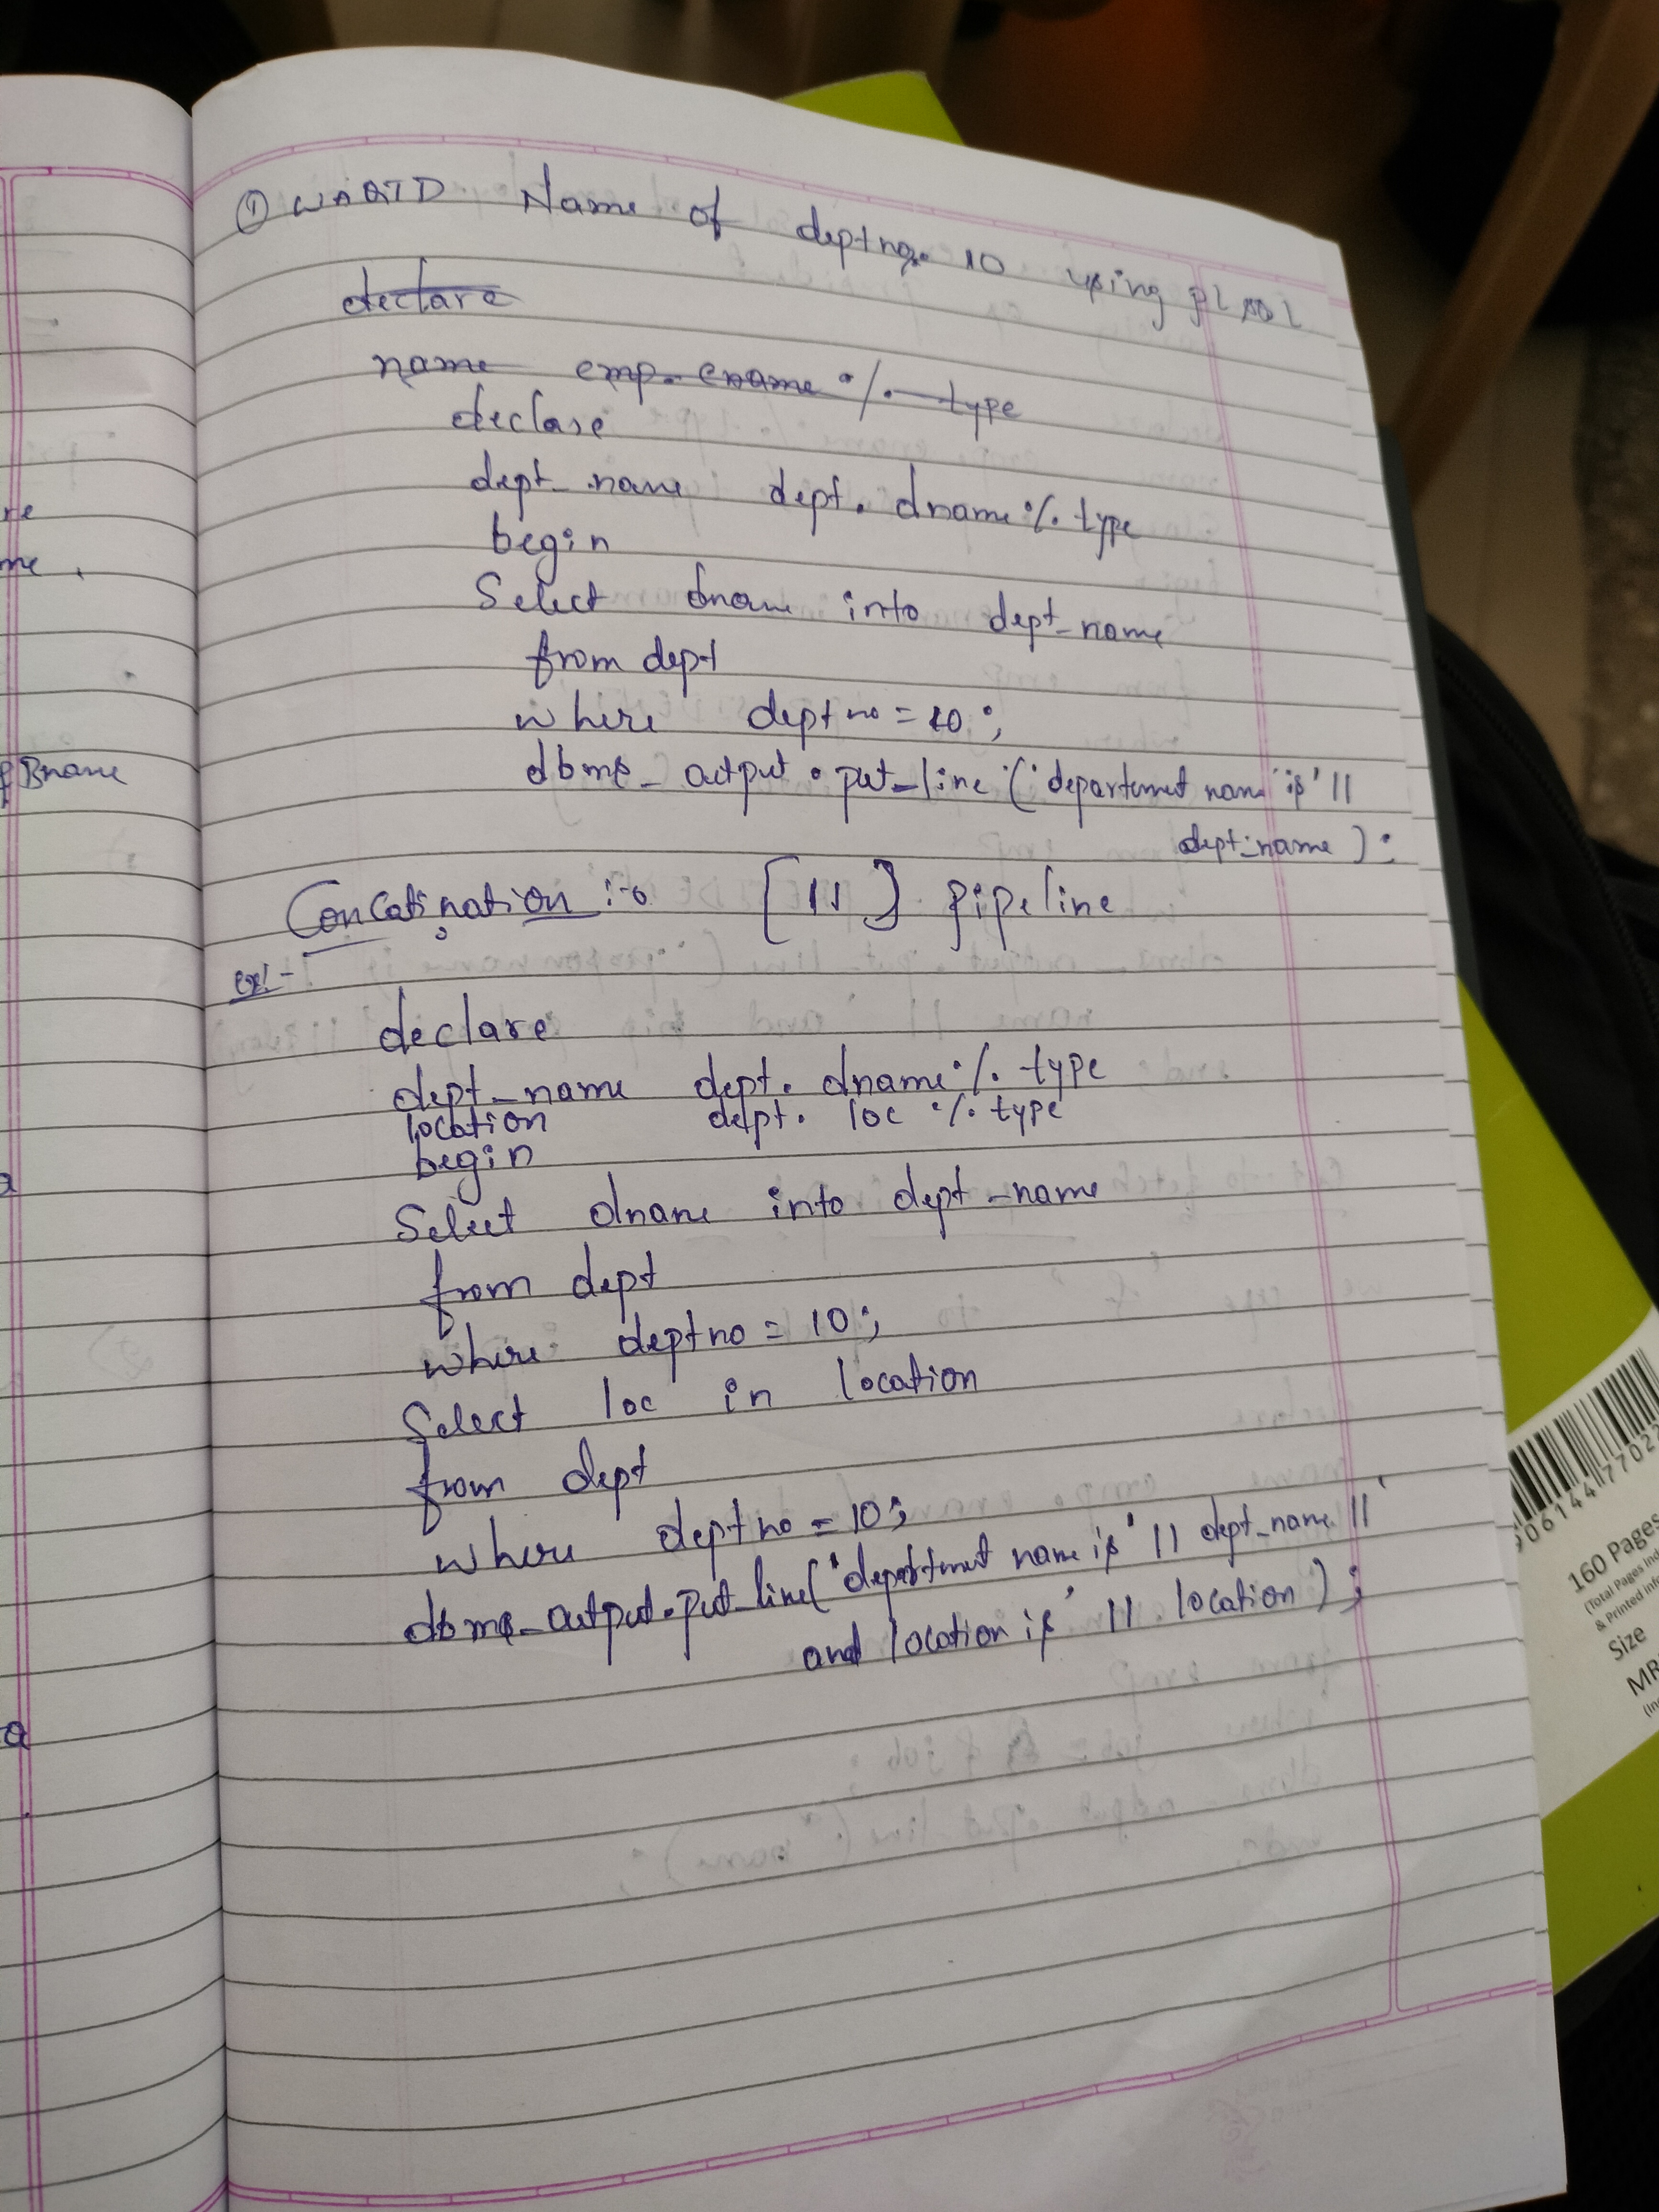 ① WAQTD Name of deptno. 10 using pl sql
declare
name emp. ename %type
declare
dept_name dept. dname%type
begin
Select dname into dept_name
from dept
where deptno = 10;
dbms_output.put_line('department name is' ||
dept_name):
Concatination :- [||] pipeline
ex:-
declare
dept_name dept. dname%type
location dept. loc %type
begin
Select dname into dept_name
from dept
where deptno = 10;
Select loc in location
from dept
where deptno = 10;
dbms_output.put_line('department name is' || dept_name || '
and location is' || location);
Bname
160 Pages
Size